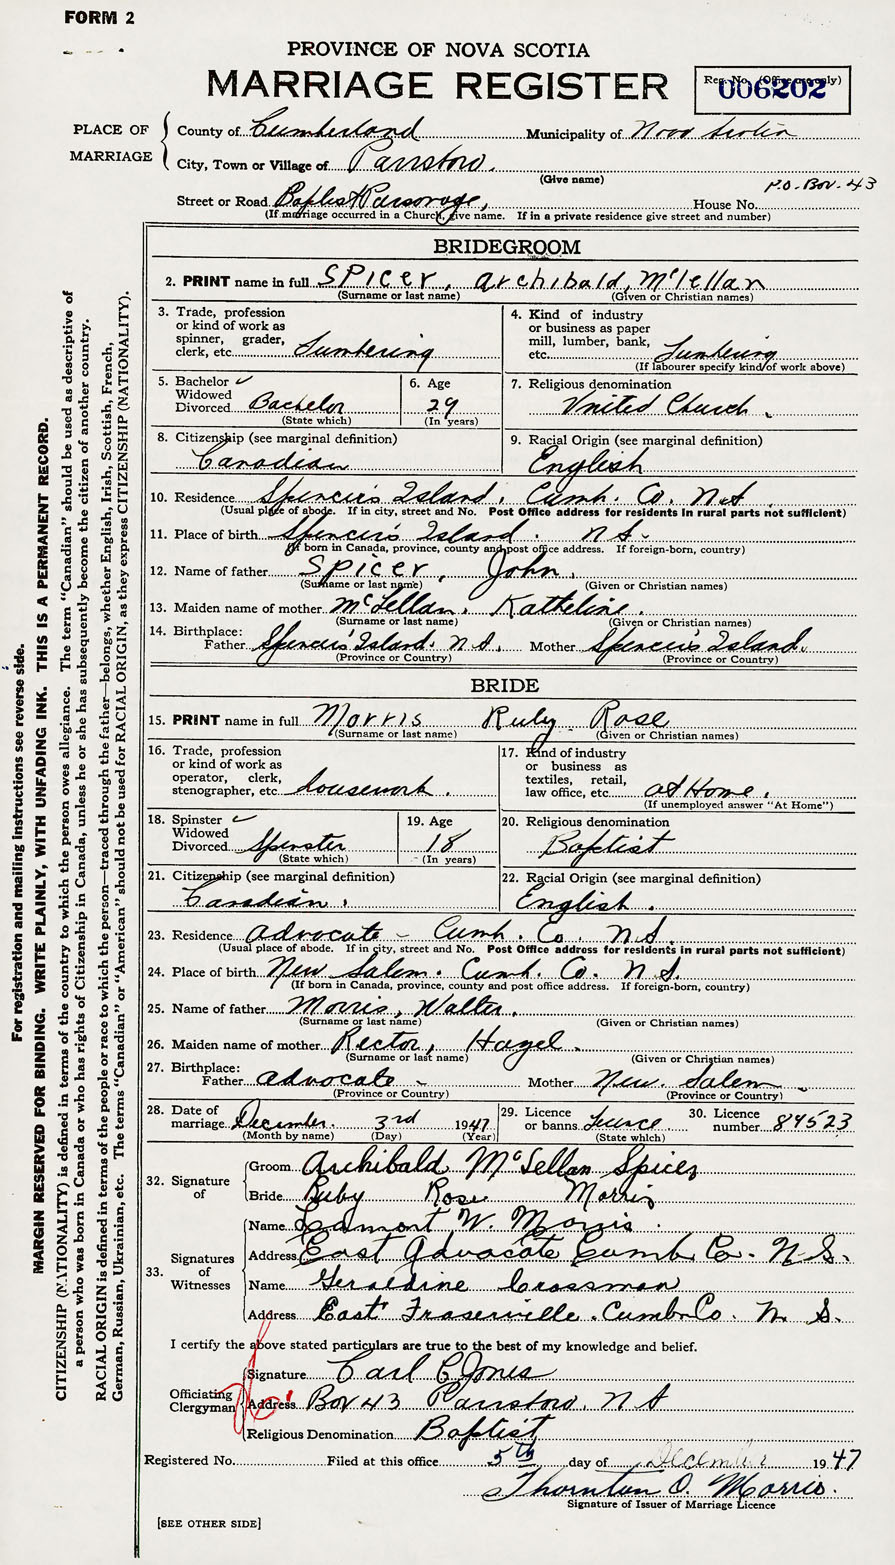 FORM 2
PROVINCE OF NOVA SCOTIA
MARRIAGE REGISTER
Reg. No. (Office use only)
006202
PLACE OF MARRIAGE
County of Cumberland Municipality of Nova Scotia
City, Town or Village of Parrsboro.
(Give name)
P.O. Box 43
Street or Road Baptist Parsonage, House No.
(If marriage occurred in a Church, give name. If in a private residence give street and number)
BRIDEGROOM
2. PRINT name in full Spicer, Archibald, McLellan
(Surname or last name) (Given or Christian names)
3. Trade, profession or kind of work as spinner, grader, clerk, etc. Lumbering
4. Kind of industry or business as paper mill, lumber, bank, etc. Lumbering
(If labourer specify kind of work above)
5. Bachelor ✓ Widowed Divorced Bachelor
(State which)
6. Age 29
(In years)
7. Religious denomination United Church.
8. Citizenship (see marginal definition) Canadian
9. Racial Origin (see marginal definition) English
10. Residence Spencer's Island, Cumb. Co. N.S.
(Usual place of abode. If in city, street and No. Post Office address for residents in rural parts not sufficient)
11. Place of birth Spencer's Island. N.S.
(If born in Canada, province, county and post office address. If foreign-born, country)
12. Name of father Spicer, John.
(Surname or last name) (Given or Christian names)
13. Maiden name of mother McLellan, Katheline.
(Surname or last name) (Given or Christian names)
14. Birthplace:
Father Spencer's Island. N.S. Mother Spencer's Island.
(Province or Country) (Province or Country)
BRIDE
15. PRINT name in full Morris Ruby Rose
(Surname or last name) (Given or Christian names)
16. Trade, profession or kind of work as operator, clerk, stenographer, etc. housework.
17. Kind of industry or business as textiles, retail, law office, etc. at Home.
(If unemployed answer "At Home")
18. Spinster ✓ Widowed Divorced Spinster
(State which)
19. Age 18
(In years)
20. Religious denomination Baptist
21. Citizenship (see marginal definition) Canadian.
22. Racial Origin (see marginal definition) English.
23. Residence Advocate - Cumb. Co. N.S.
(Usual place of abode. If in city, street and No. Post Office address for residents in rural parts not sufficient)
24. Place of birth New Salem. Cumb. Co. N.S.
(If born in Canada, province, county and post office address. If foreign-born, country)
25. Name of father Morris, Walter.
(Surname or last name) (Given or Christian names)
26. Maiden name of mother Rector, Hazel.
(Surname or last name) (Given or Christian names)
27. Birthplace:
Father Advocate - Mother New Salem.
(Province or Country) (Province or Country)
28. Date of marriage December. 3rd 1947
(Month by name) (Day) (Year)
29. Licence or banns Licence.
(State which)
30. Licence number 89523
32. Signature of
Groom Archibald McLellan Spicer
Bride Ruby Rose Morris
33. Signatures of Witnesses
Name Lamont W. Morris.
Address East Advocate Cumb Co. N.S.
Name Geraldine Crossman
Address East Fraserville. Cumb. Co. N.S.
I certify the above stated particulars are true to the best of my knowledge and belief.
Officiating Clergyman
Signature Carl C Jones
Address Box 43 Parrsboro. N S
Religious Denomination Baptist
Registered No. Filed at this office 5th day of December 1947
Thornton O. Morris.
Signature of Issuer of Marriage Licence
[SEE OTHER SIDE]
For registration and mailing instructions see reverse side.
MARGIN RESERVED FOR BINDING. WRITE PLAINLY, WITH UNFADING INK. THIS IS A PERMANENT RECORD.
CITIZENSHIP (NATIONALITY) is defined in terms of the country to which the person owes allegiance. The term "Canadian" should be used as descriptive of
a person who was born in Canada or who has rights of Citizenship in Canada, unless he or she has subsequently become the citizen of another country.
RACIAL ORIGIN is defined in terms of the people or race to which the person—traced through the father—belongs, whether English, Irish, Scottish, French,
German, Russian, Ukrainian, etc. The terms "Canadian" or "American" should not be used for RACIAL ORIGIN, as they express CITIZENSHIP (NATIONALITY).